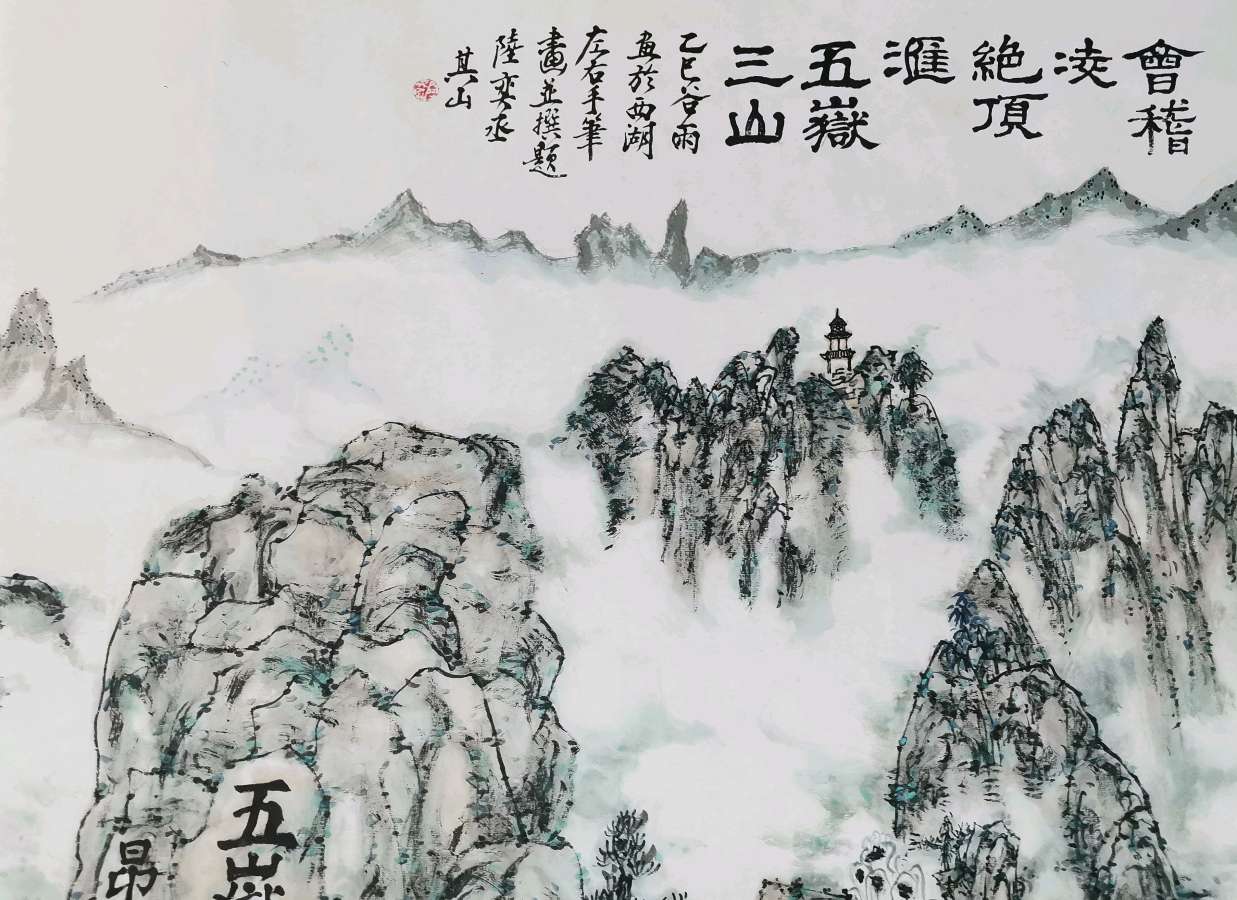 會稽
凌
絶頂
滙
五嶽
三山
乙巳谷雨
画於西湖
左右手筆
畫並撰題
陸奕丞
其山
五嶽
昂